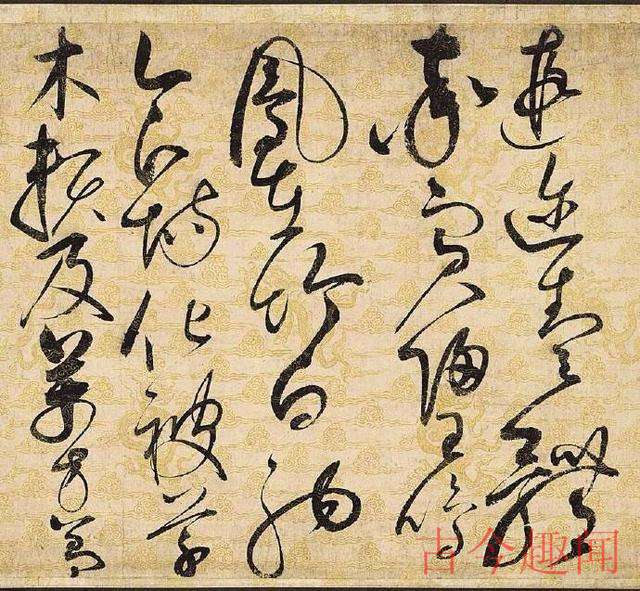 遐邇壹體
率賓歸王鳴
鳳在樹白駒
食場化被草
木賴及萬方蓋
古今趣闻